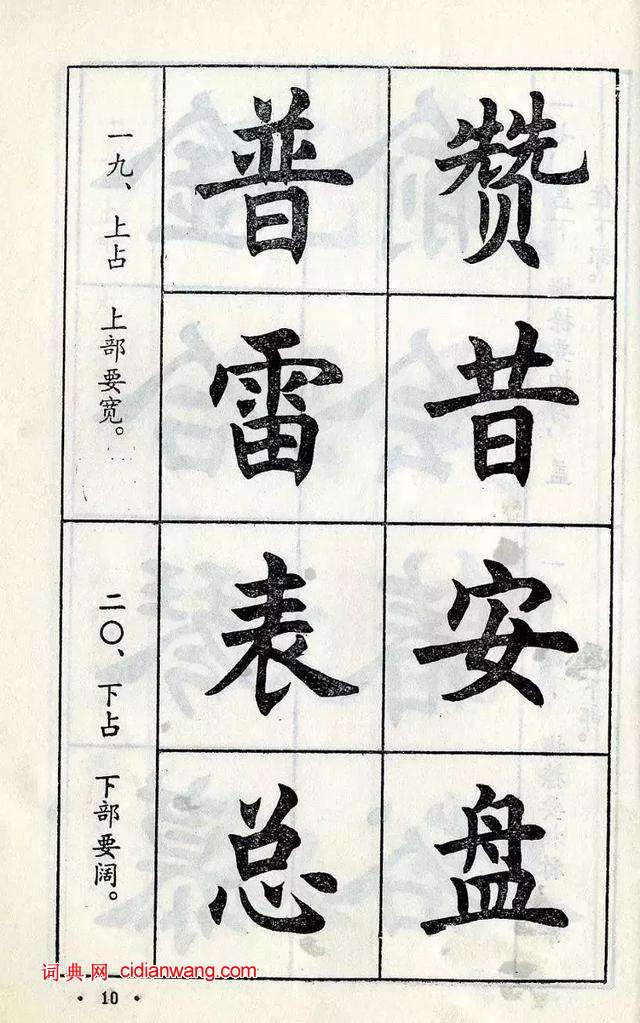 一九、上占 上部要宽。
普赞
雷昔
二〇、下占 下部要阔。
表安
总盘
词典网 cidianwang.com
· 10 ·